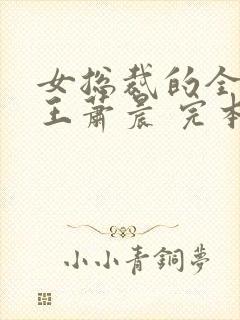 女总裁的全
王萧晨 完本
小小青铜梦